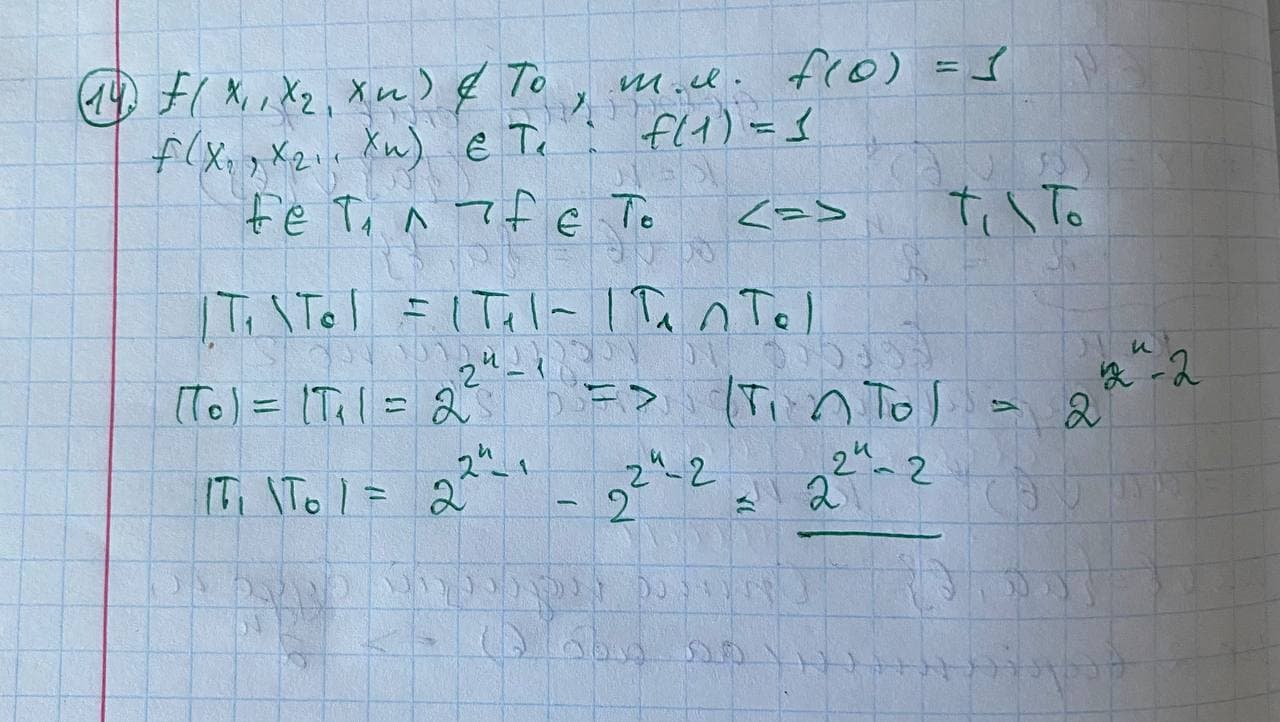 14. f(x₁, x₂, xₙ) ∉ T₀, т.к. f(0) = 1
f(x₁, x₂, , xₙ) ∈ T₁ : f(1) = 1
f ∈ T₁ ∧ ¬f ∈ T₀ <=> T₁ \ T₀
|T₁ \ T₀| = |T₁| - |T₁ ∩ T₀|
|T₀| = |T₁| = 2^(2ⁿ-1) => |T₁ ∩ T₀| = 2^(2ⁿ-2)
|T₁ \ T₀| = 2^(2ⁿ-1) - 2^(2ⁿ-2) = 2^(2ⁿ-2)